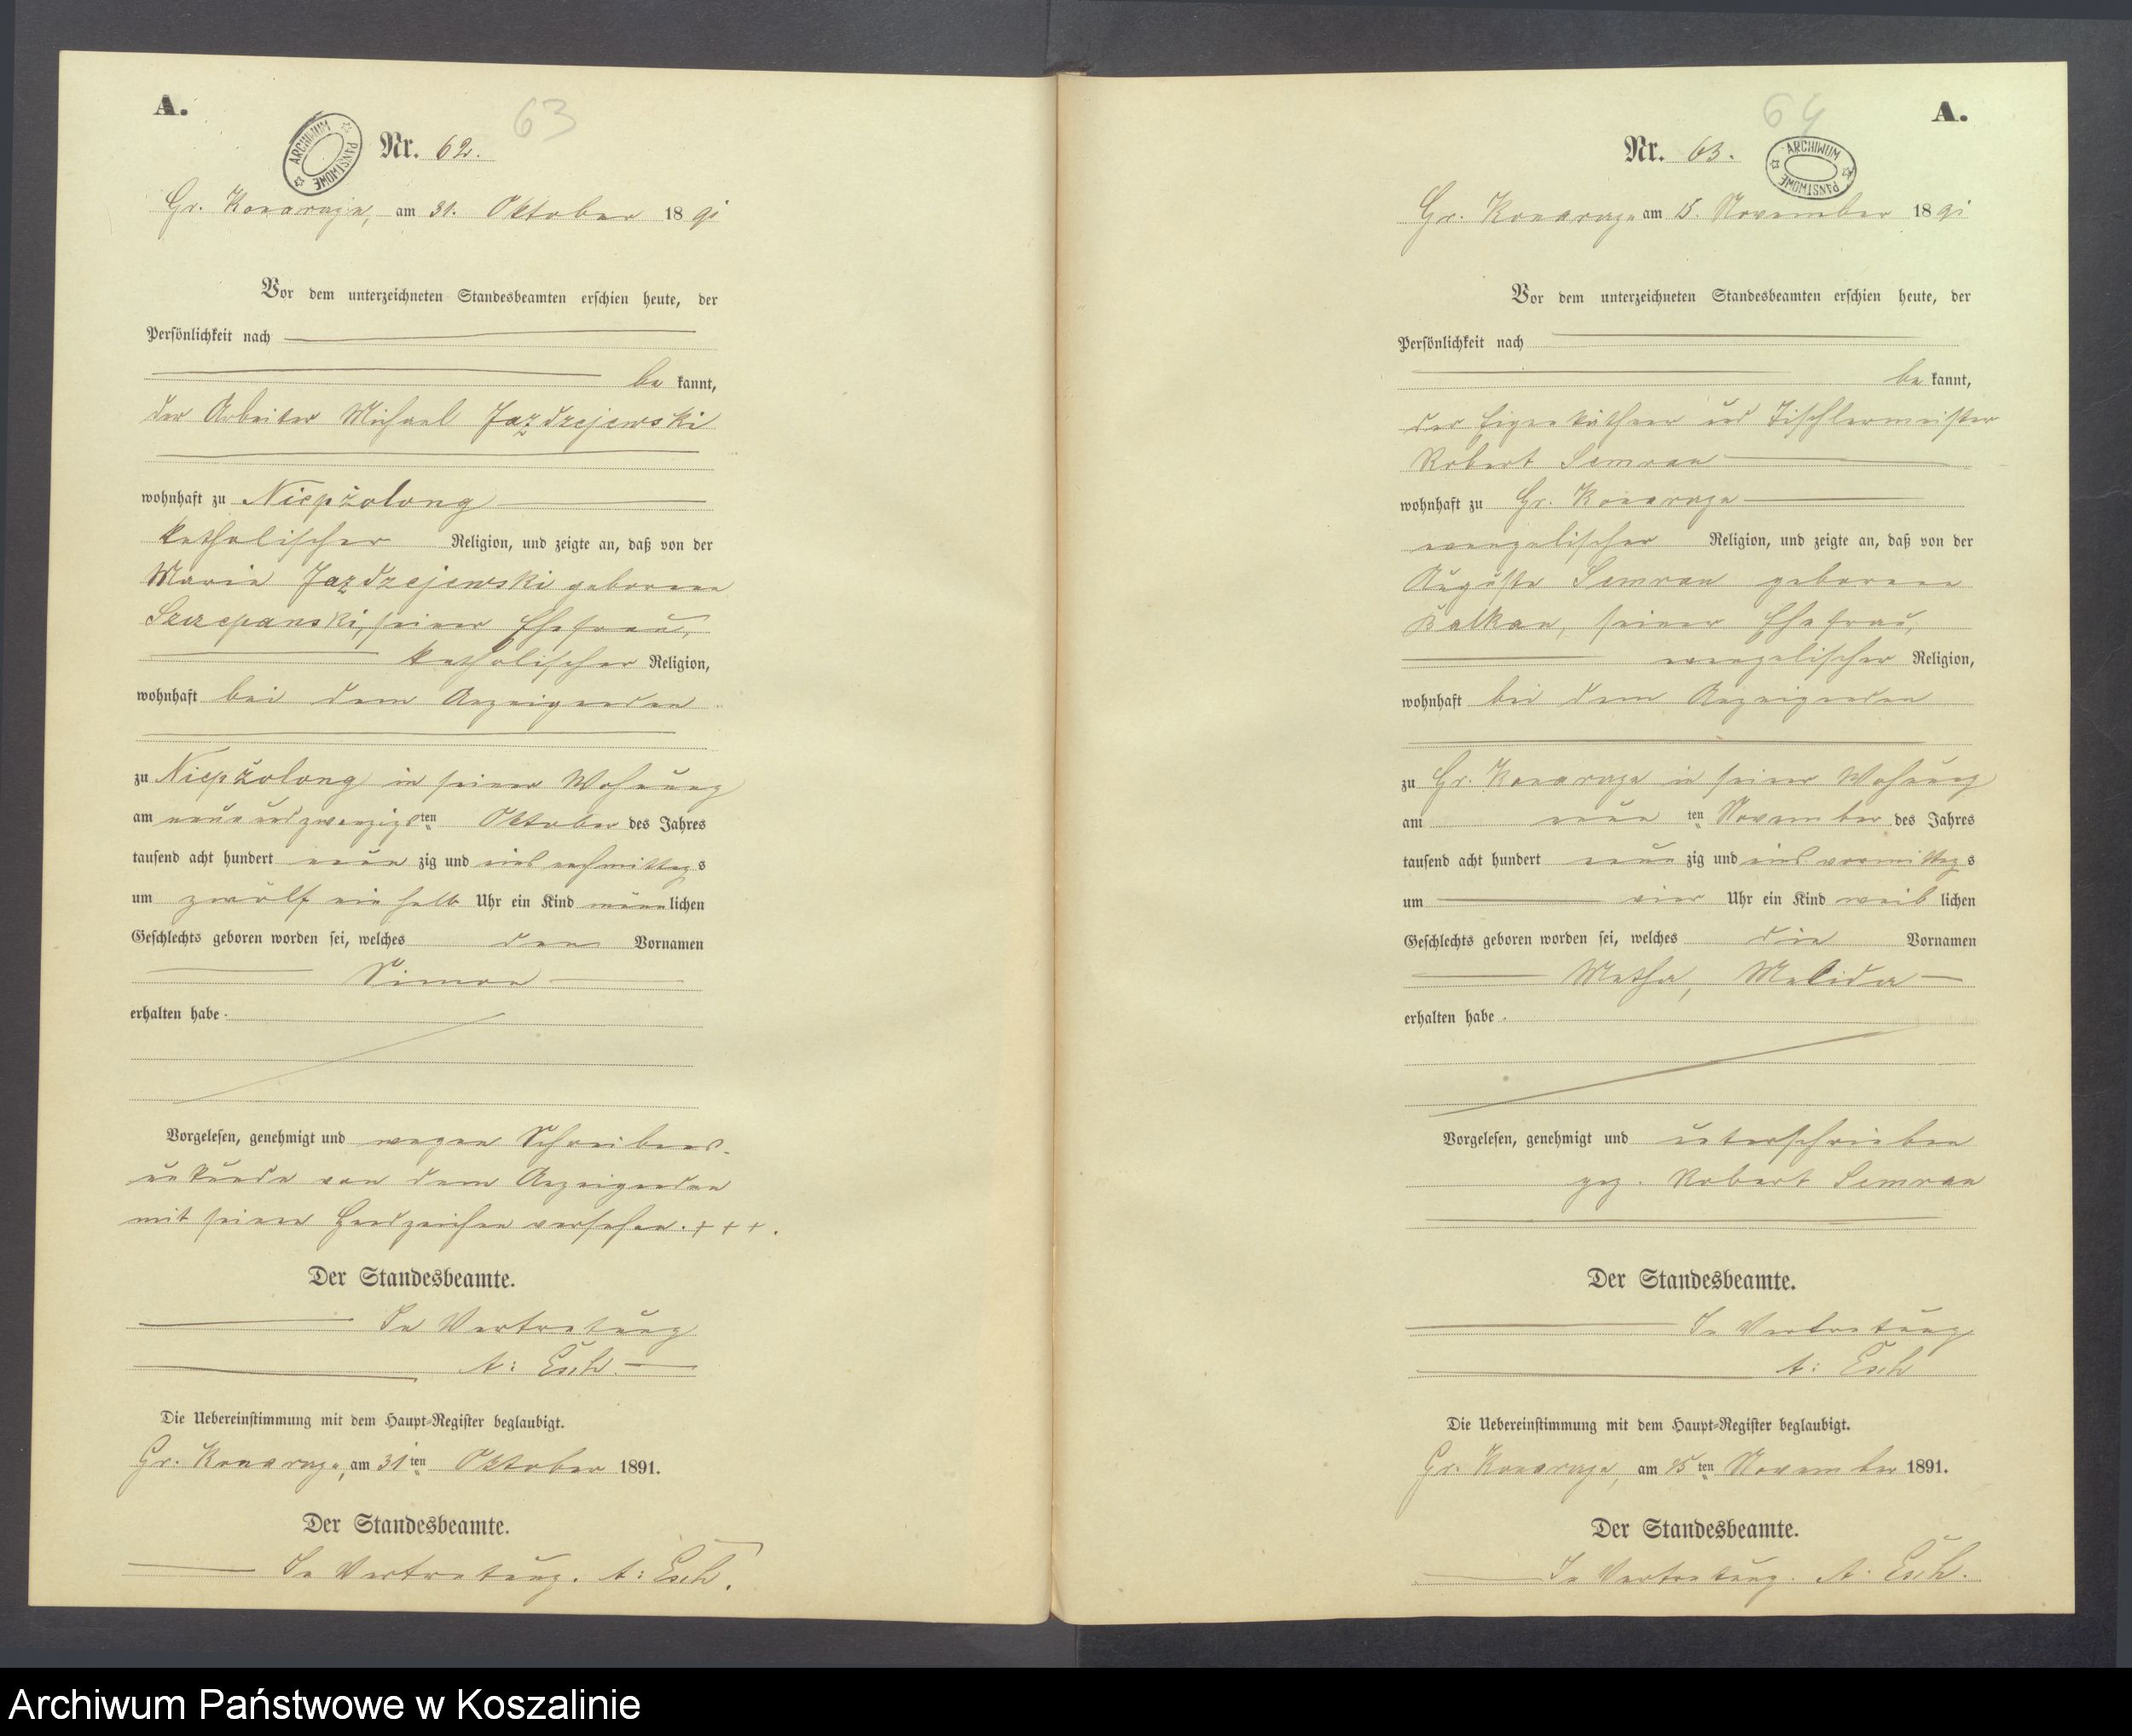 A.
63
ARCHIWUM PAŃSTWOWE
Nr. 62.
Gr. Konarzyn, am 31. Oktober 1891
Vor dem unterzeichneten Standesbeamten erschien heute, der
Persönlichkeit nach
be kannt,
der Arbeiter Michael Jazdzejewski
wohnhaft zu Niepżolong
katholischer Religion, und zeigte an, daß von der
Maria Jazdzejewski geborene
Szczepanski, seiner Ehefrau,
katholischer Religion,
wohnhaft bei dem Anzeigenden
zu Niepżolong in seiner Wohnung
am neunundzwanzigsten Oktober des Jahres
tausend acht hundert neun zig und eins nachmittags
um zwölf ein halb Uhr ein Kind männlichen
Geschlechts geboren worden sei, welches den Vornamen
Simon
erhalten habe.
Vorgelesen, genehmigt und wegen Schreibens-
unkunde von dem Anzeigenden
mit seinen Handzeichen versehen. + + +.
Der Standesbeamte.
In Vertretung
A: Esch.
Die Uebereinstimmung mit dem Haupt-Register beglaubigt.
Gr. Konarzyn, am 31ten Oktober 1891.
Der Standesbeamte.
In Vertretung. A: Esch.
64
A.
Nr. 63.
ARCHIWUM PAŃSTWOWE
Gr. Konarzyn am 15. November 1891
Vor dem unterzeichneten Standesbeamten erschien heute, der
Persönlichkeit nach
be kannt,
der Eigenkäthner und Tischlermeister
Robert Semrau
wohnhaft zu Gr. Konarzyn
evangelischer Religion, und zeigte an, daß von der
Auguste Semrau geborene
Balkau, seiner Ehefrau,
evangelischer Religion,
wohnhaft bei dem Anzeigenden
zu Gr. Konarzyn in seiner Wohnung
am neun ten November des Jahres
tausend acht hundert neun zig und eins vormittags
um vier Uhr ein Kind weib lichen
Geschlechts geboren worden sei, welches die Vornamen
Metha, Melida
erhalten habe.
Vorgelesen, genehmigt und unterschrieben
gez. Robert Semrau
Der Standesbeamte.
In Vertretung
A: Esch
Die Uebereinstimmung mit dem Haupt-Register beglaubigt.
Gr. Konarzyn, am 15ten November 1891.
Der Standesbeamte.
In Vertretung. A: Esch.
Archiwum Państwowe w Koszalinie